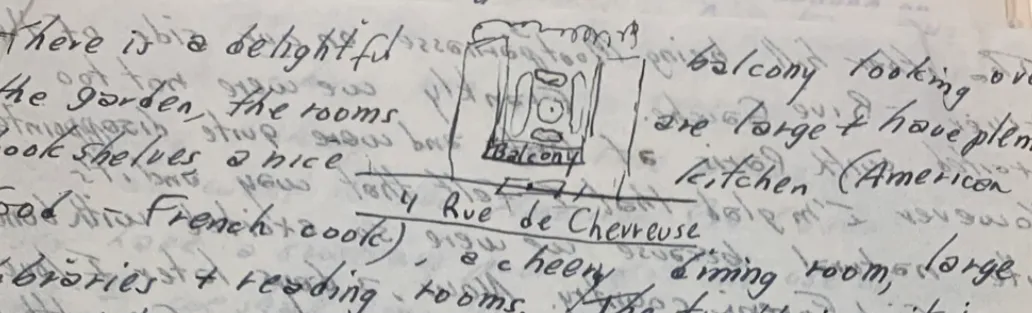 There is a delightful balcony looking ov
the garden, the rooms are large + have plen
ook shelves a nice kitchen (American
French cook), a cheery dining room, large
braries + reading rooms. The
Balcony
4 Rue de Chevreuse